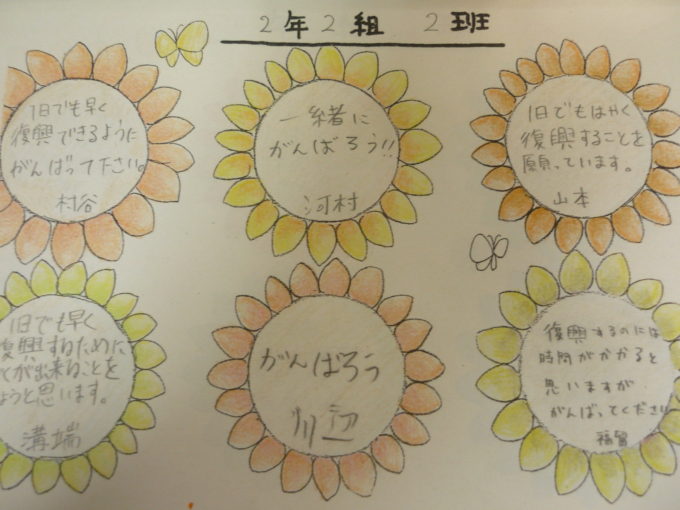 2年2組 2班
1日でも早く
復興できるように
がんばって下さい。
村谷
一緒に
がんばろう!!
河村
1日でもはやく
復興することを
願っています。
山本
1日でも早く
復興するために
が出来ることを
ようと思います。
溝端
がんばろう
川辺
復興するのには
時間がかかると
思いますが
がんばってください
福留